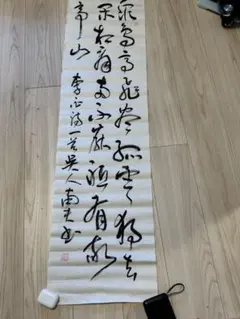 众鸟高飞尽孤云独去
闲相看两不厌只有敬
亭山 李白诗一首吴人南夫书